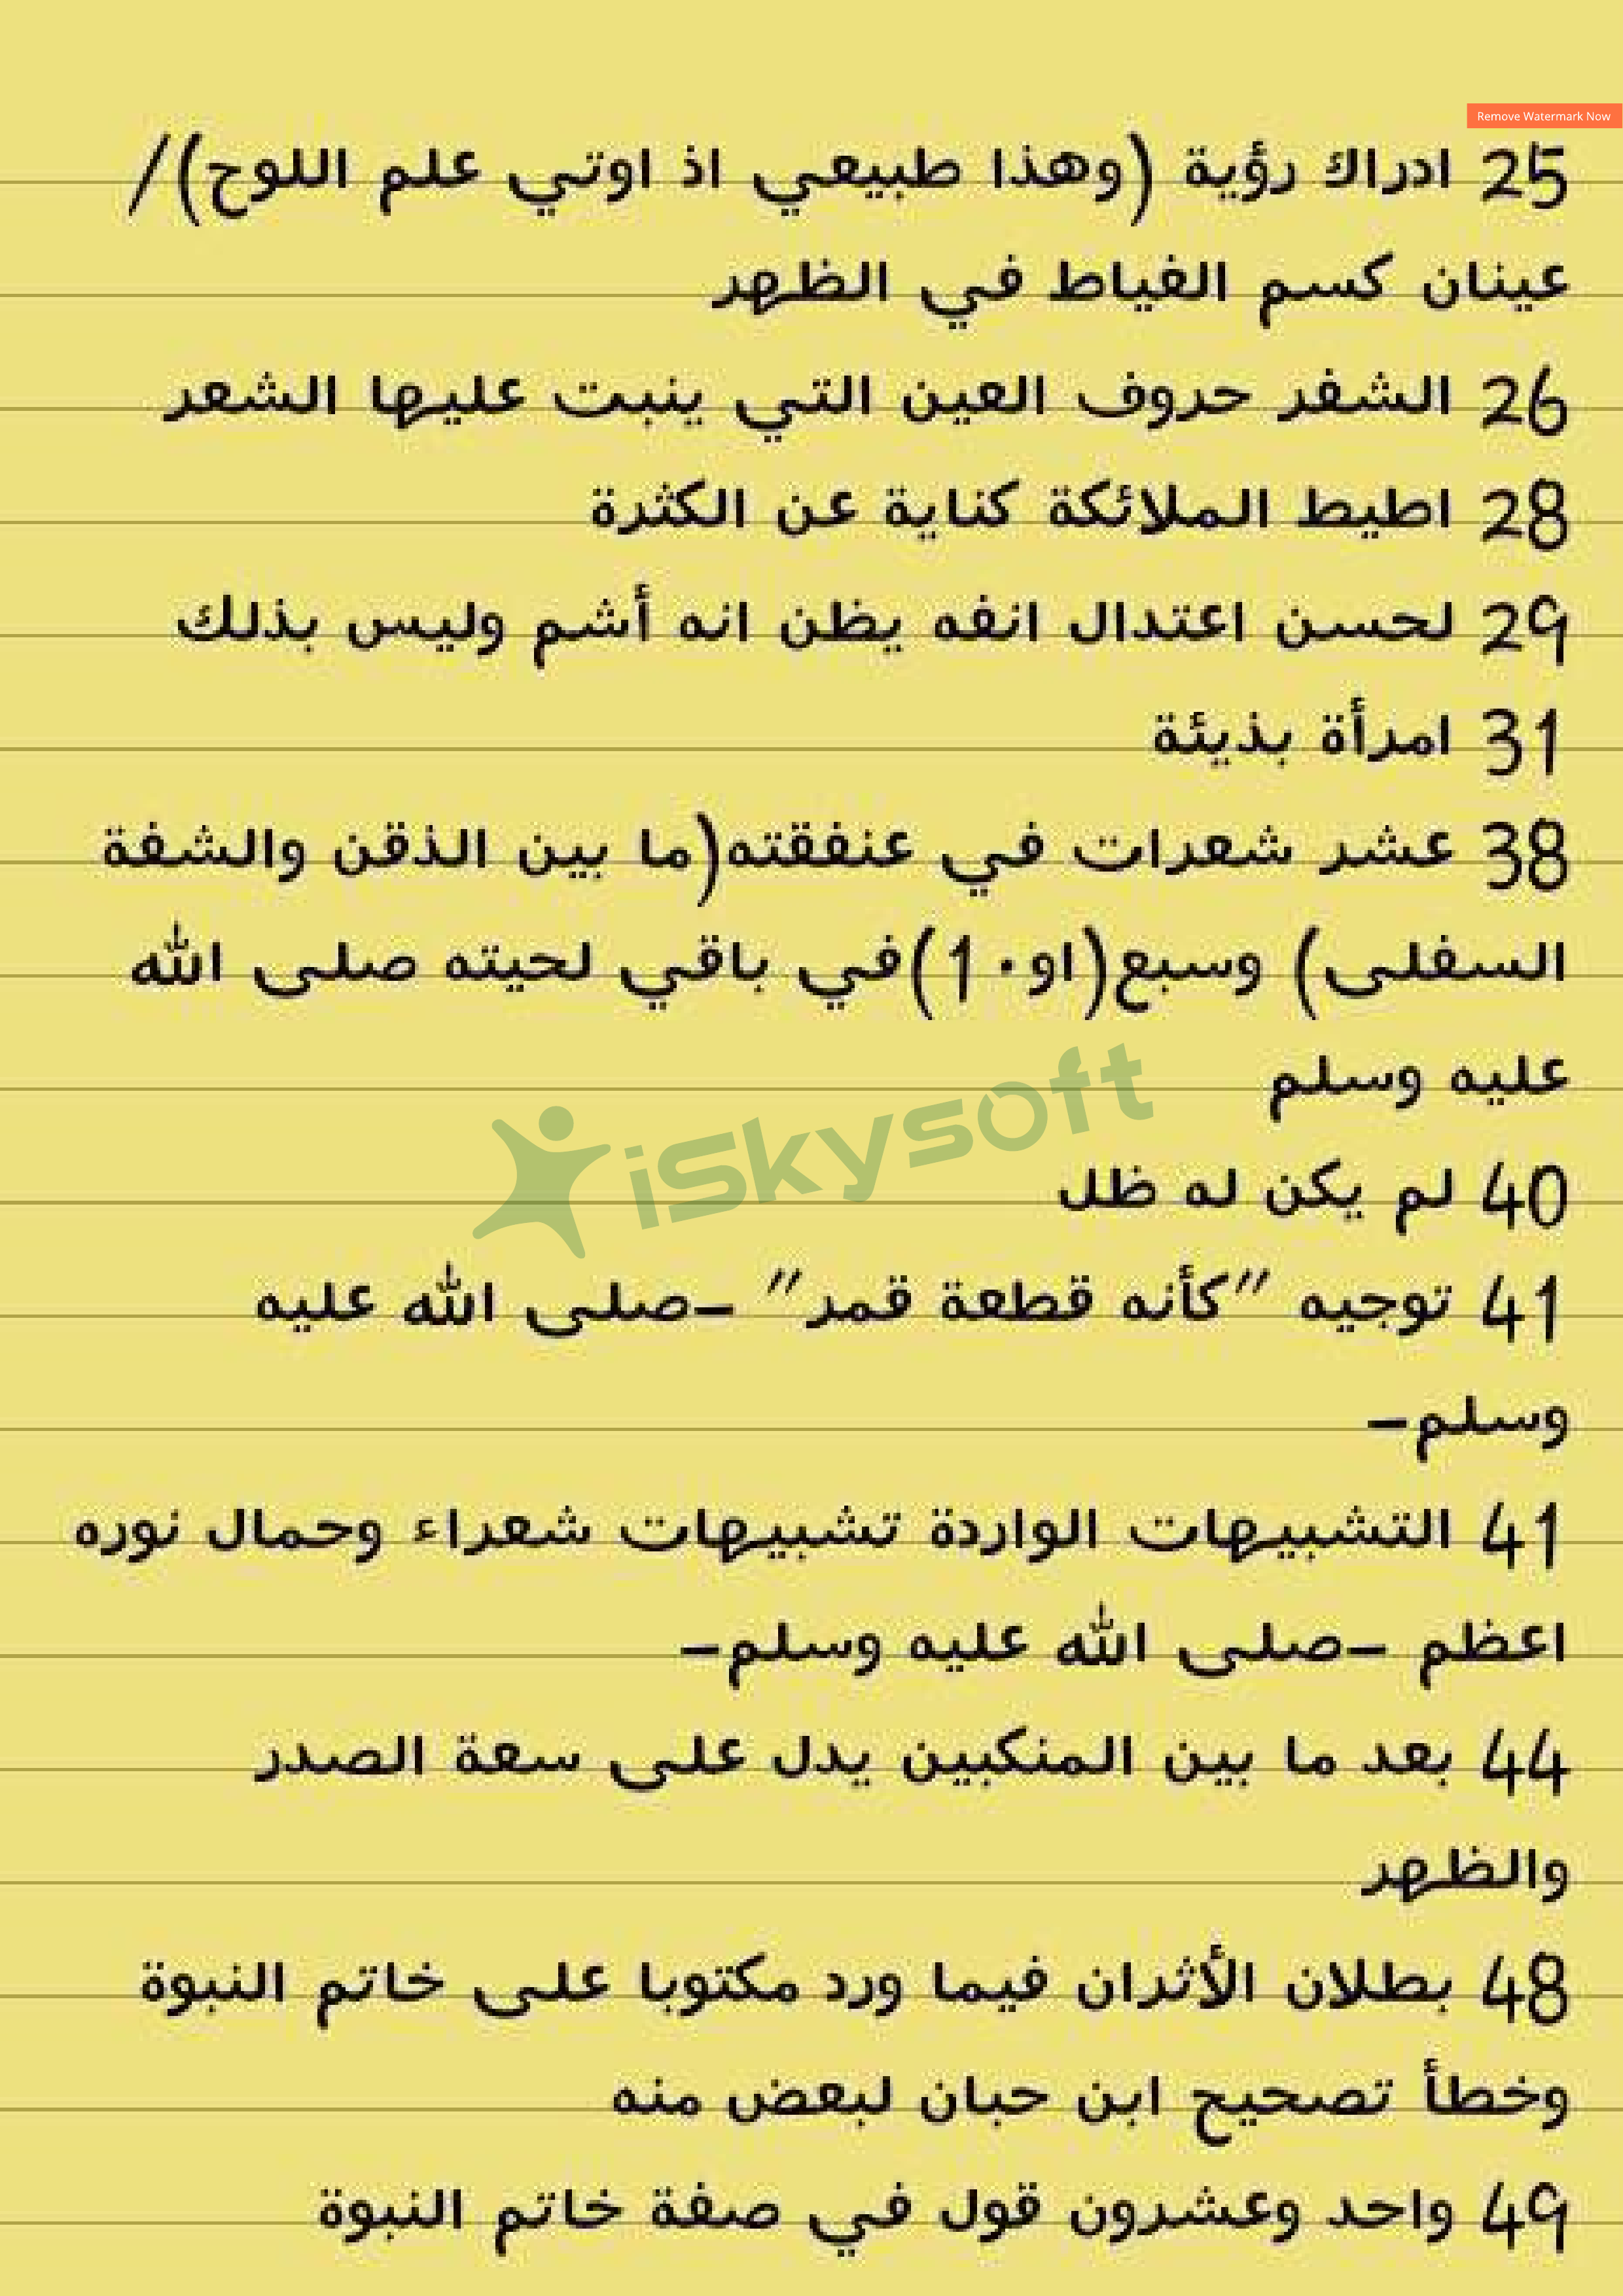 Remove Watermark Now
25 ادراك رؤية (وهذا طبيعي اذ اوتي علم اللوح)/
عينان كسم الفياط في الظهر
26 الشفر حروف العين التي ينبت عليها الشعر
28 اطيط الملائكة كناية عن الكثرة
29 لحسن اعتدال انفه يظن انه أشم وليس بذلك
31 امرأة بذيئة
38 عشر شعرات في عنفقته(ما بين الذقن والشفة
السفلى) وسبع(او٠ 1)في باقي لحيته صلى الله
عليه وسلم
iSkysoft
40 لم يكن له ظل
41 توجيه "كأنه قطعة قمر" -صلى الله عليه
وسلم-
41 التشبيهات الواردة تشبيهات شعراء وحمال نوره
اعظم -صلى الله عليه وسلم-
44 بعد ما بين المنكبين يدل على سعة الصدر
والظهر
48 بطلان الأثران فيما ورد مكتوبا على خاتم النبوة
وخطأ تصحيح ابن حبان لبعض منه
49 واحد وعشرون قول في صفة خاتم النبوة